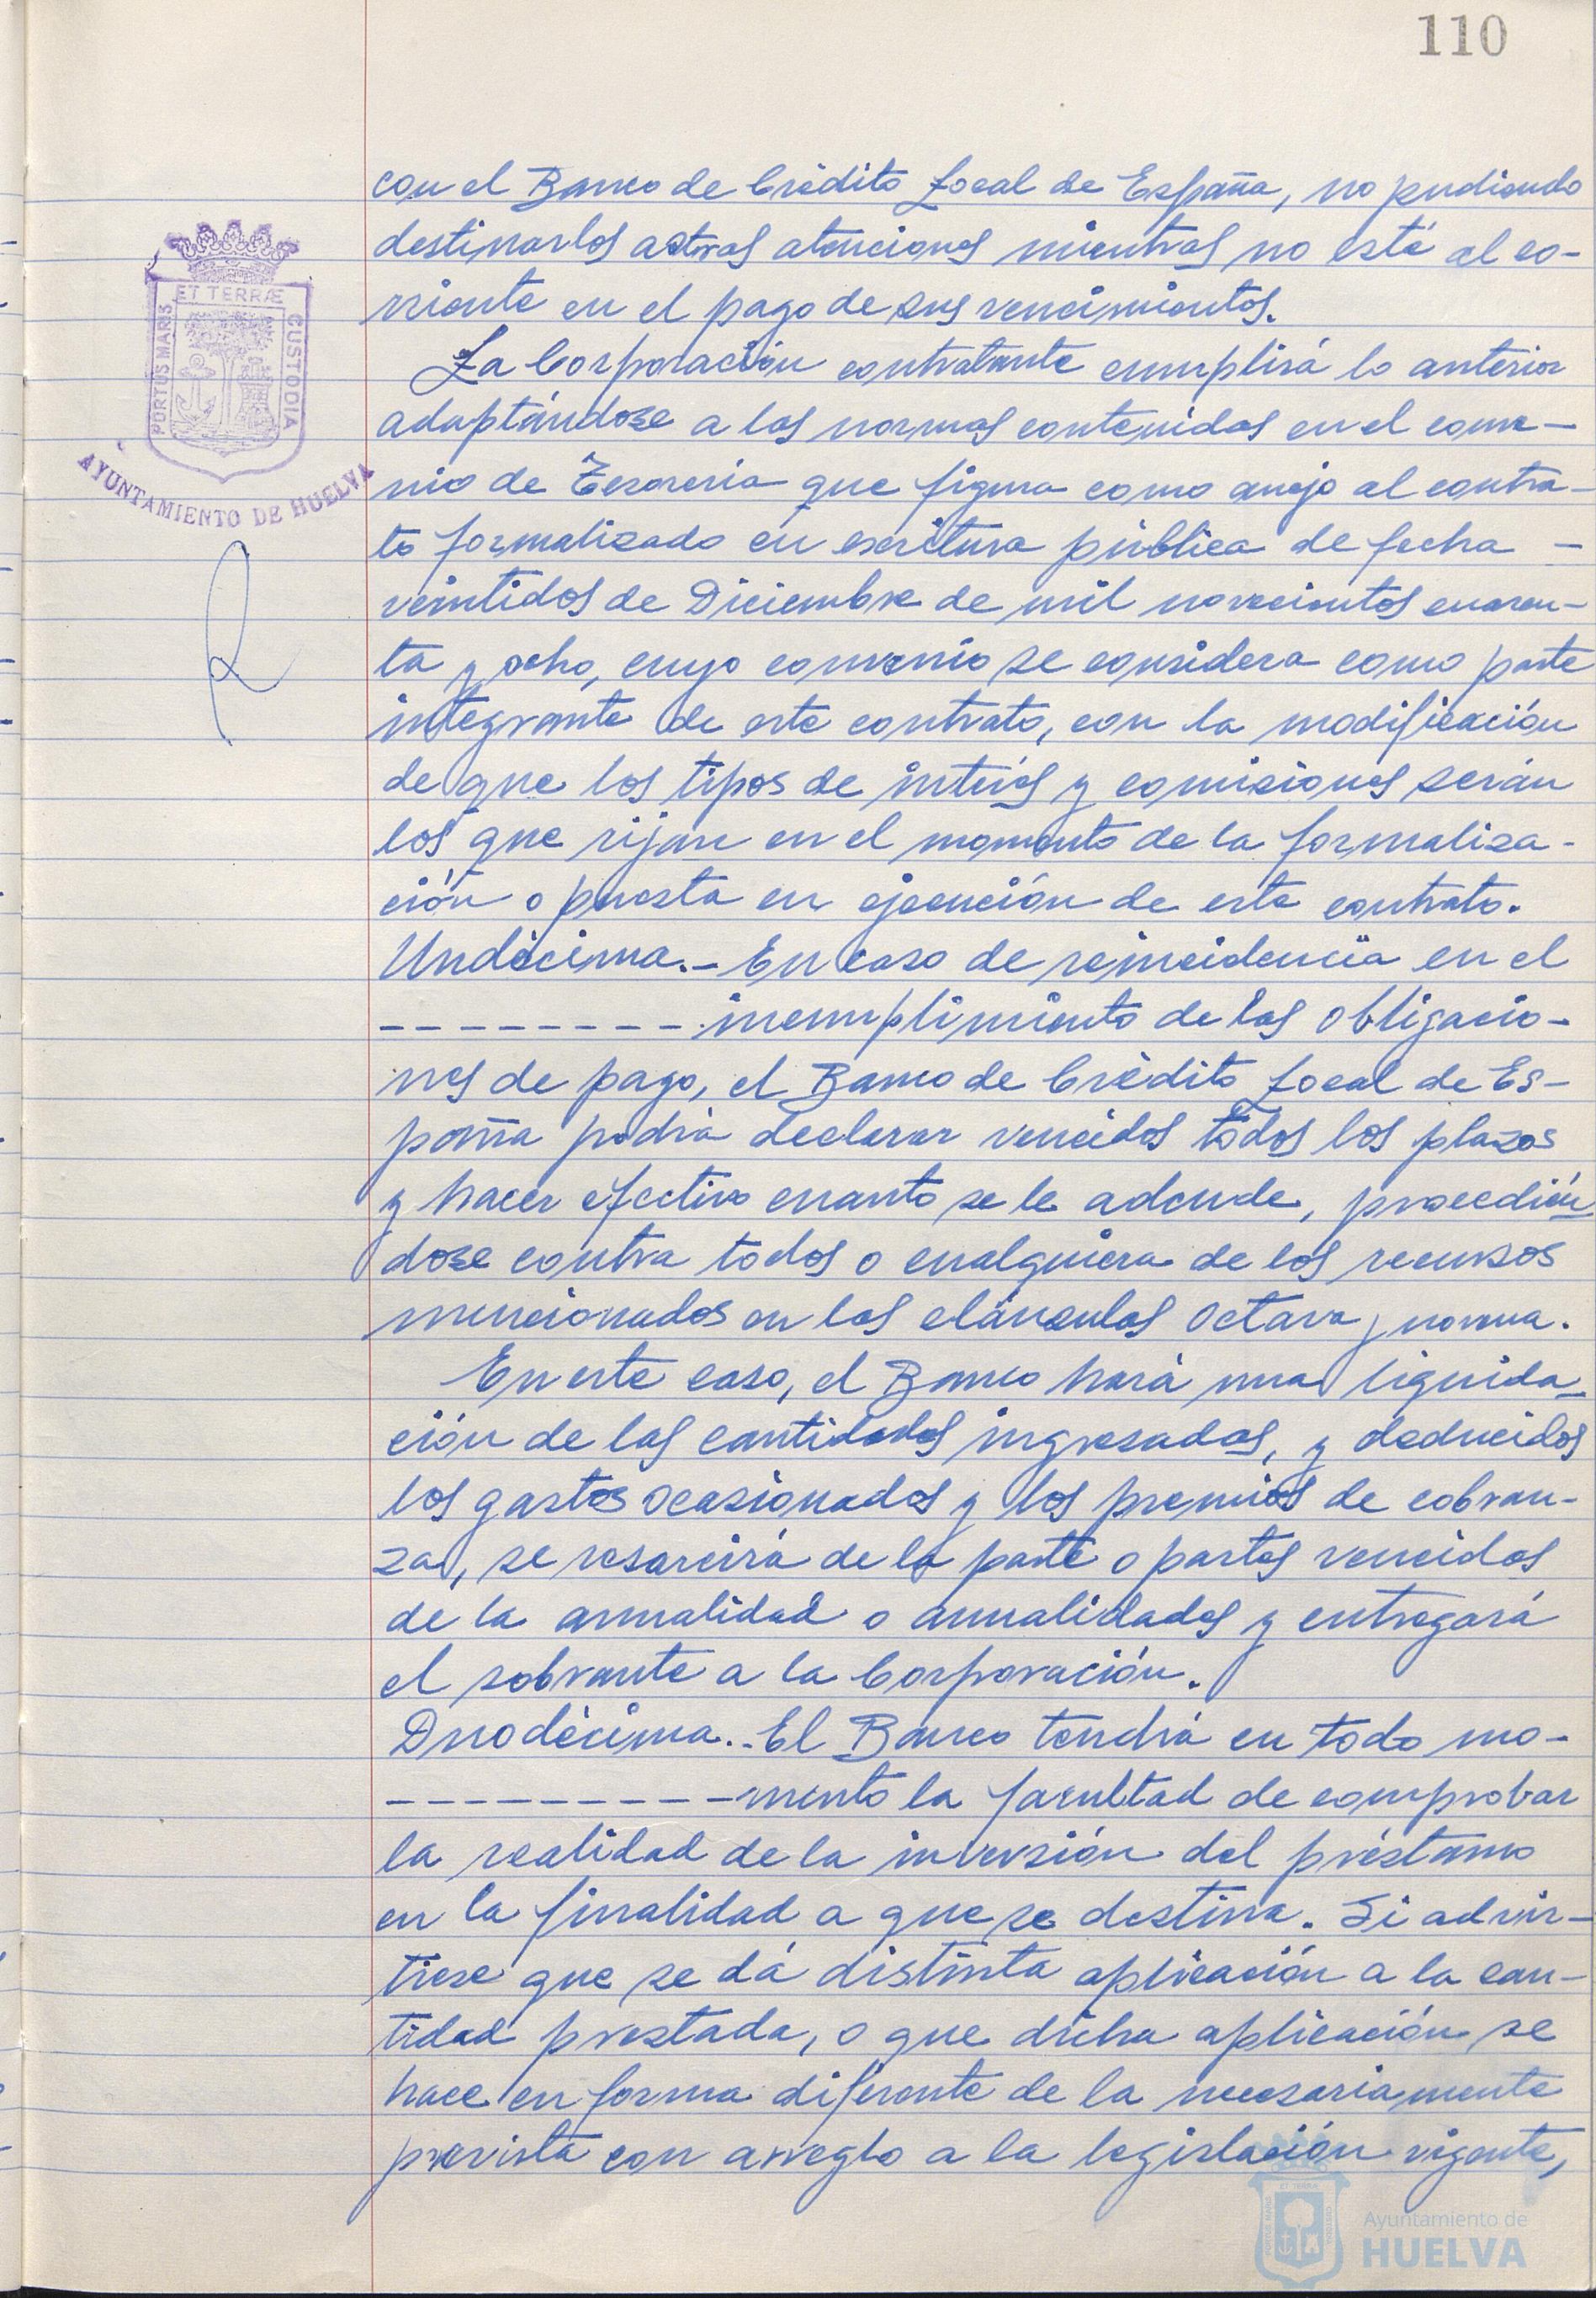 110
con el Banco de Crédito Local de España, no pudiendo
destinarlos a otras atenciones mientras no esté al co-
rriente en el pago de sus vencimientos.
La Corporación contratante cumplirá lo anterior
adaptándose a las normas contenidas en el conve-
nio de Tesorería que figura como anejo al contra-
to formalizado en escritura pública de fecha -
veintidos de Diciembre de mil novecientos cuaren-
ta y ocho, cuyo convenio se considera como parte
integrante de este contrato, con la modificación
de que los tipos de interés y comisiones serán
los que rijan en el momento de la formaliza-
ción o puesta en ejecución de este contrato.
Undécima.- En caso de reincidencia en el
--------- incumplimiento de las obligacio-
nes de pago, el Banco de Crédito Local de Es-
paña podrá declarar vencidos todos los plazos
y hacer efectivo cuanto se le adeude, procedién
dose contra todos o cualquiera de los recursos
mencionados en las cláusulas octava y novena.
En este caso, el Banco hará una liquida-
ción de las cantidades ingresadas, y deducidos
los gastos ocasionados y los premios de cobran-
za, se resarcirá de la parte o partes vencidas
de la anualidad o anualidades y entregará
el sobrante a la Corporación.
Duodécima.- El Banco tendrá en todo mo-
---------- mento la facultad de comprobar
la realidad de la inversión del préstamo
en la finalidad a que se destina. Si advir-
tiese que se dá distinta aplicación a la can-
tidad prestada, o que dicha aplicación se
hace en forma diferente de la necesariamente
prevista con arreglo a la legislación vigente,
PORTUS MARIS
ET TERRÆ
CUSTODIA
AYUNTAMIENTO DE HUELVA
Ayuntamiento de
HUELVA